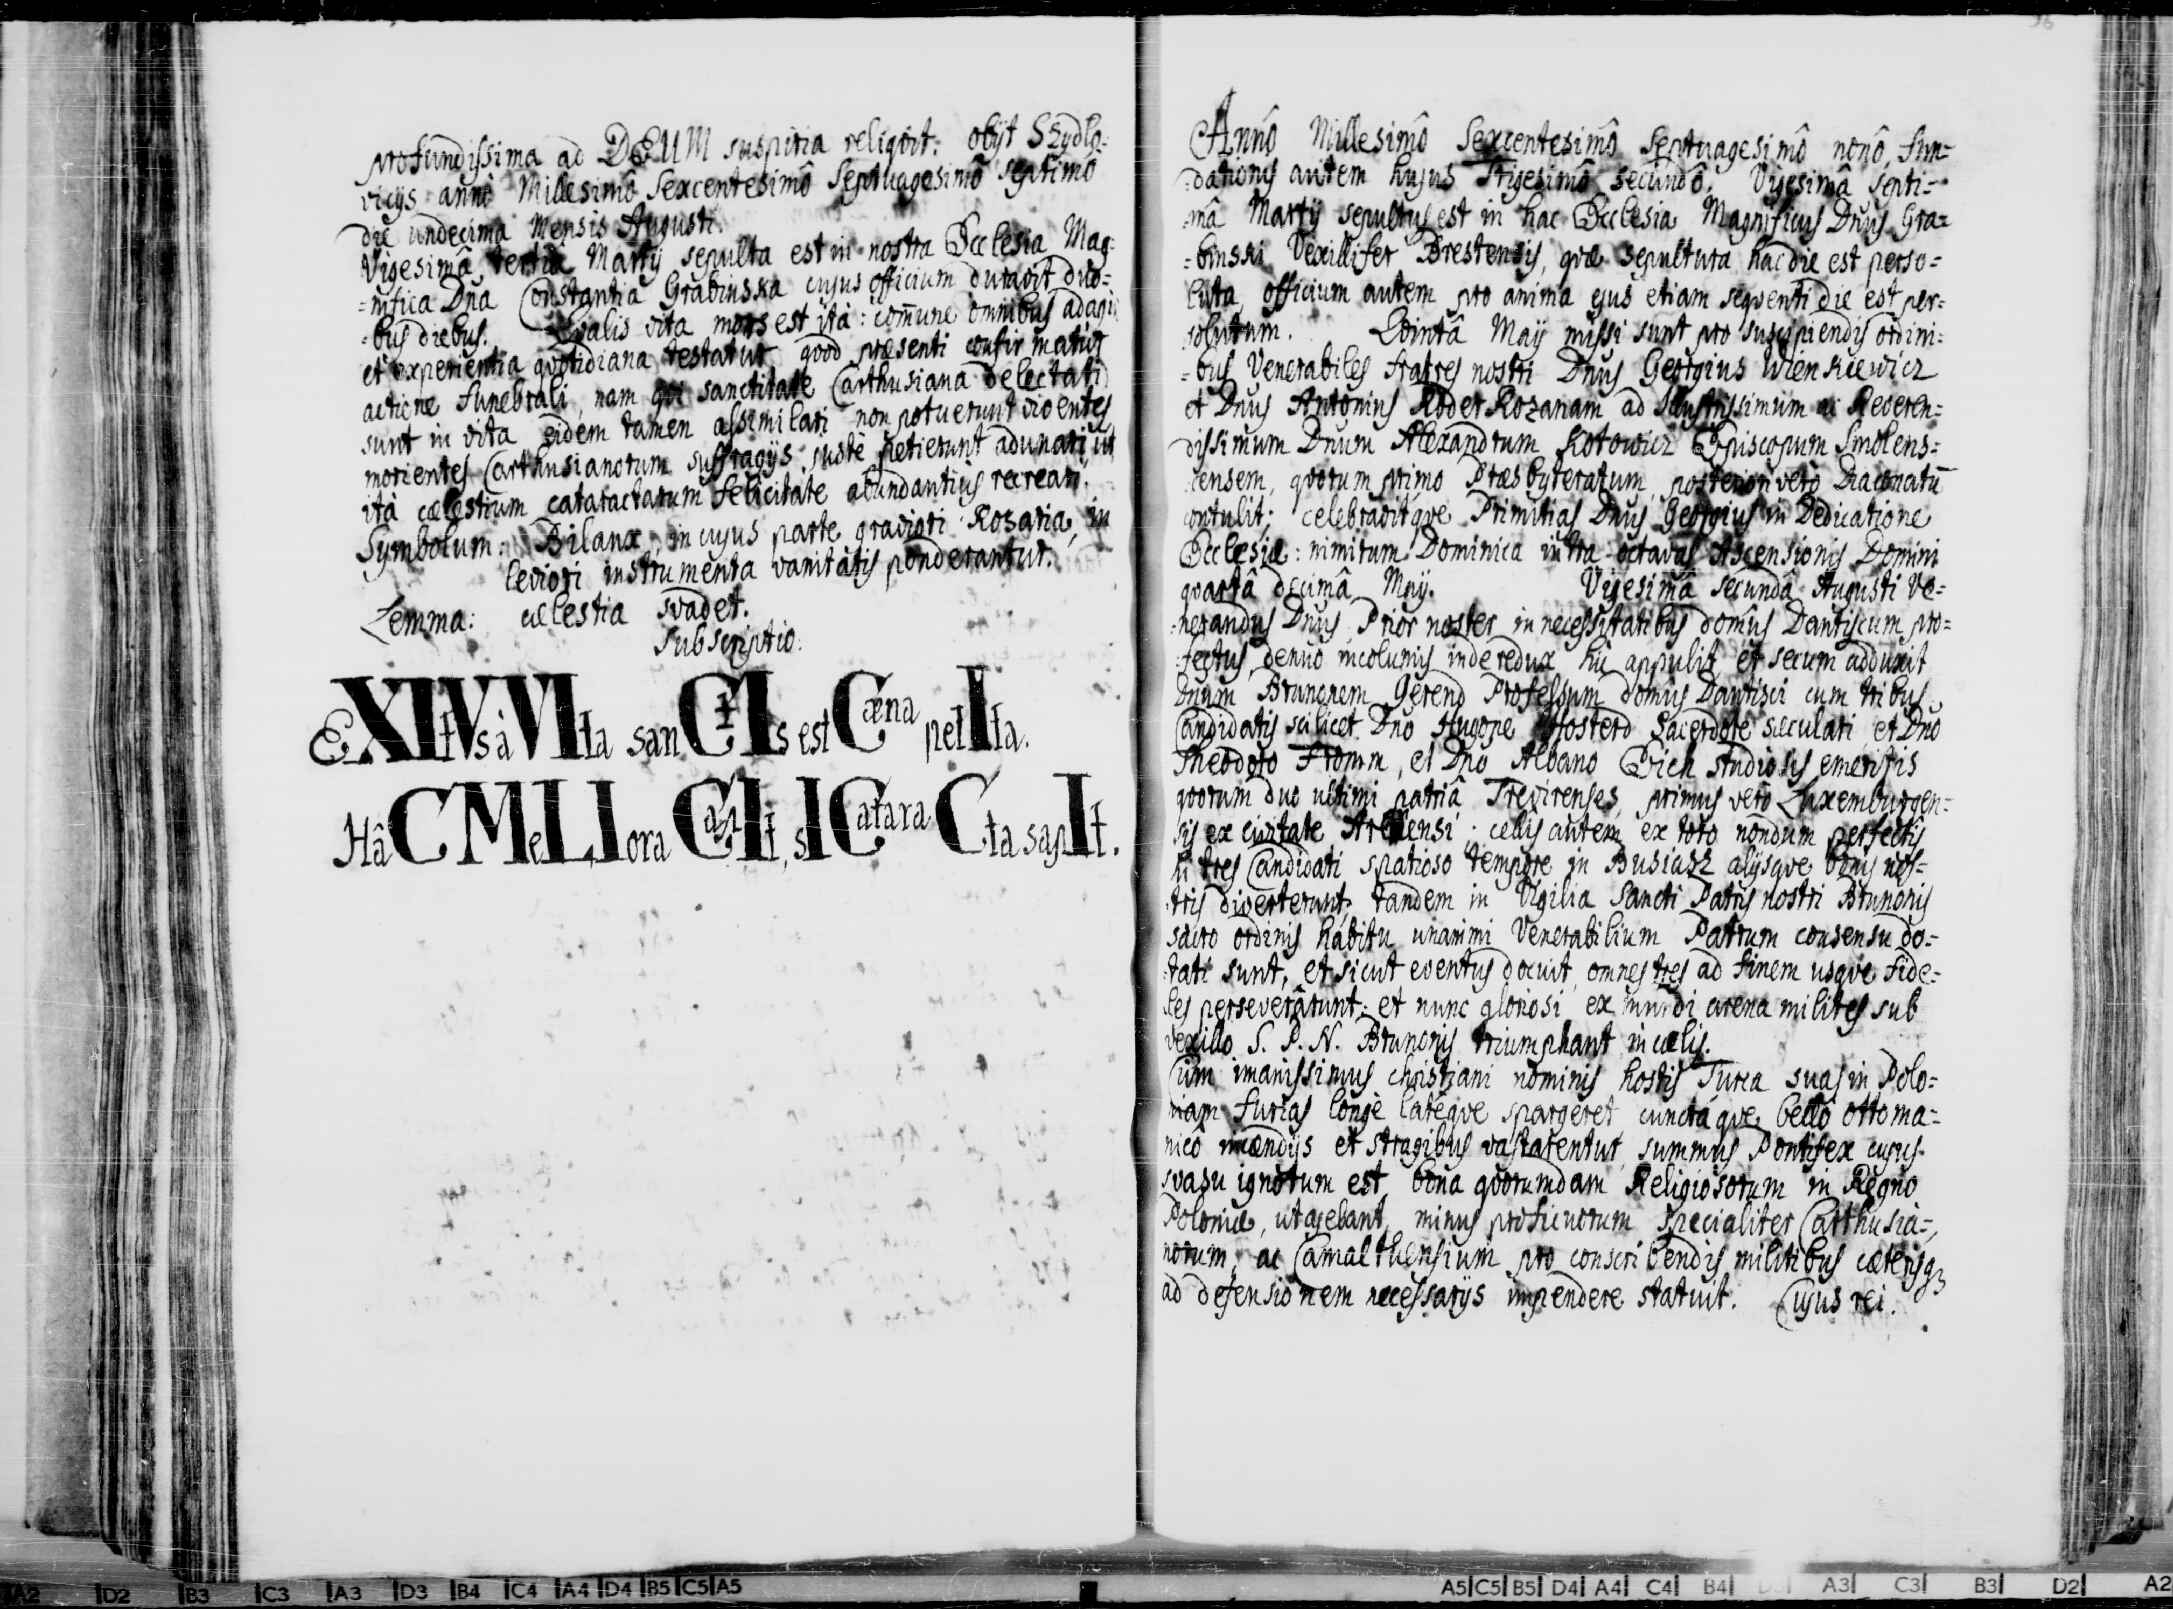 profundissima ad DEUM suspiria reliqvit. obijt SZydlo-
vicijs annô Millesimô Sexcentesimô Septuagesimô septimô
die undecima Mensis Augusti.
Vigesimâ tertiâ Martij sepulta est in nostra Ecclesia Mag-
=nifica Dna Constantia Grabinska cujus officium duravit duo=
=bus diebus. Qvalis vita mors est ità: com̄une omnibus adagiū
et experientia qvotidiana testatur qvod præsenti confirmatur
actione funebrali, nam qvi sanctitate Carthusiana delectati
sunt in vita eidem tamen assimilari non potuerunt viventes
morientes Carthusianorum suffragijs justè petierunt adunari ut
ità cælestium cataractarum felicitate abundantius recreari.
Symbolum: Bilanx, in cujus parte graviori Rosaria, in
leviori instrumenta vanitatis ponderantur.
Lemma: cælestia svadet.
Subscriptio:
EXItVs à VIta sanCtIs est Cæna petIta.
Hâc MeLIora CapIt, sIC Catara Cta sapIt.
36
Annô Millesimô Sexcentesimô Septuagesimô nonô, fun=
=dationis autem hujus Trigesimô secundô. Vigesimâ septi=
=mâ Martij sepultus est in hac Ecclesia Magnificus Dnus Gra=
=binski Vexillifer Brestensis, qvæ sepultura hac die est perso=
luta, officium autem pro anima ejus etiam seqventi die est per=
solutum. Qvintâ Maij missi sunt pro suscipiendis ordini=
=bus Venerabiles fratres nostri Dnus Georgius Wienkiewicz
et Dnus Antonius Roder Rozanam ad Illustrissimum ac Reveren=
dissimum Dnum Alexandrum Kotowicz Episcopum Smolens=
censem, qvorum primo Præsbyteratum, posteriori verò Diaconatū
contulit; celebravitqve Primitias Dnus Georgius in Dedicatione
Ecclesiæ: nimirum Dominica infra octavas Ascensionis Domini
qvartâ decimâ Maij. Vigesimâ secundâ Augusti Ve=
=nerandus Dnus Prior noster in necessitatibus domûs Dantiscum pro=
=fectus denuò incolumis inde redux hic appulit et secum adduxit
Dnum Brunonem Gerend Professum domûs Dantisci cum tribus
Candidatis scilicet Dno Hugone Sacerdote sæculari et Dno
Theodoro Fromm, et Dno Albano Eich studiosis emeritis
qvorum duo ultimi patriâ Trevirenses, primus verò Luxemburgen=
sis ex civitate; cellis autem ex toto nondum perfectis
hi tres Candidati spatioso tempore in Busiasz alijsqve bonis nos=
tris diverterunt, tandem in Vigilia Sancti Patris nostri Brunonis
sacro ordinis habitu unanimi Venerabilium Patrum consensu do=
tati sunt, et sicut eventus docuit omnes tres ad finem usqve fide=
les perseverârunt: et nunc gloriosi ex mundi arena milites sub
vexillo S. P. N. Brunonis triumphant in cælis.
Cùm imanissimus christiani nominis hostis Turca suas in Polo=
niam furias longè latéqve spargeret cunctáqve bellô ottoma=
nicô incendijs et stragibus vastarentur summus Pontifex cujus
svasu ignotum est bona qvorumdam Religiosorum in Regno
Poloniæ, ut ajebant, minus proficuorum specialiter Carthusia=
norum, ac Camalthensium pro conscribendis militibus cæterisq3
ad defensionem necessarijs impendere statuit. Cujus rei